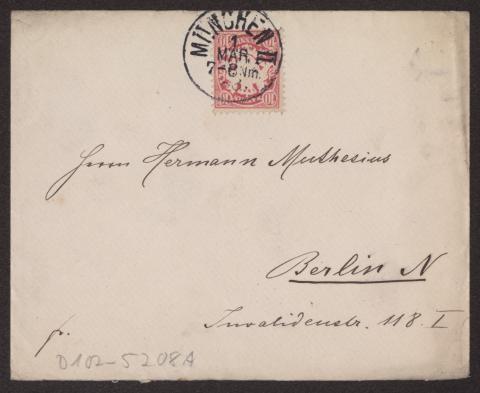 MÜNCHEN II.
1
MAR.
7-8 Nm.
10 10
Herrn Hermann Muthesius
Berlin N
Invalidenstr. 118 I
fr.
D102-5208A